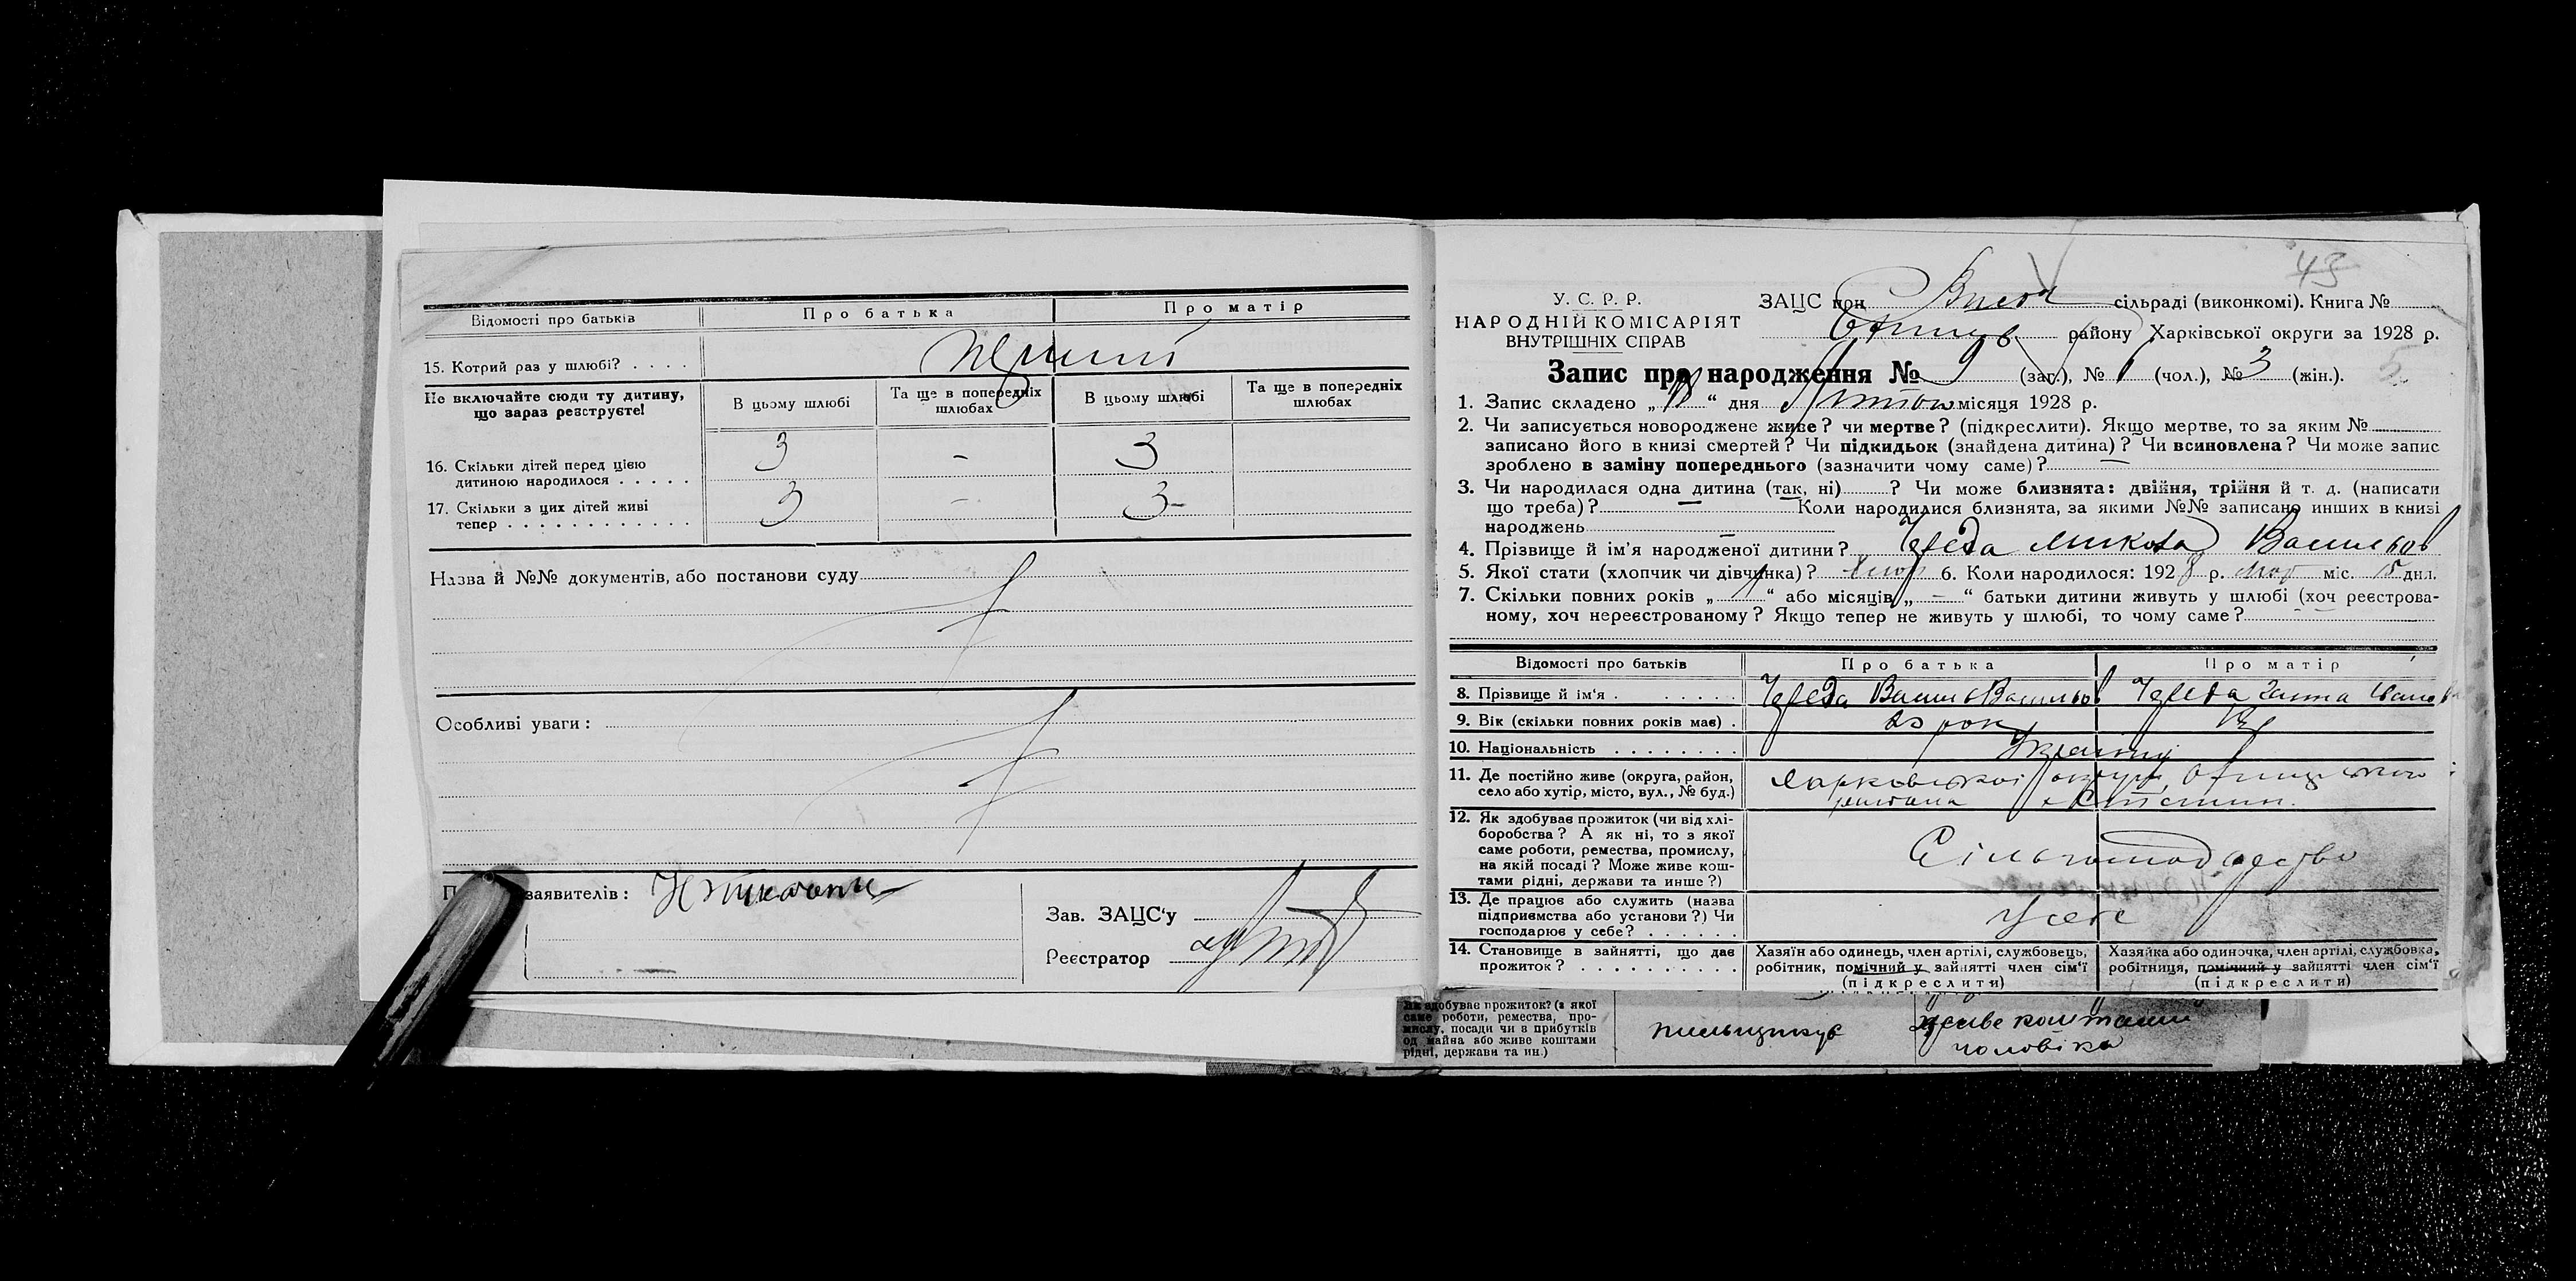 Відомості про батьків
Про батька
Про матір
15. Котрий раз у шлюбі? . . . .
Не включайте сюди ту дитину,
що зараз реєструєте!
В цьому шлюбі
Та ще в попередніх
шлюбах
В цьому шлюбі
Та ще в попередніх
шлюбах
16. Скільки дітей перед цією
дитиною народилося . . . . .
3 - 3
17. Скільки з цих дітей живі
тепер . . . . . . . . . . . .
3 - 3-
Назва й №№ документів, або постанови суду
Особливі уваги:
заявителів:
Зав. ЗАЦС'у
Реєстратор
43
У. С. Р. Р.
НАРОДНІЙ КОМІСАРІЯТ
ВНУТРІШНІХ СПРАВ
ЗАЦС при сільраді (виконкомі). Книга №
району Харківської округи за 1928 р.
Запис про народження № 9 (заг.), № (чол.), № 3 (жін.).
5
1. Запис складено „ “ дня місяця 1928 р.
2. Чи записується новороджене живе? чи мертве? (підкреслити). Якщо мертве, то за яким №
записано його в книзі смертей? Чи підкидьок (знайдена дитина)? Чи всиновлена? Чи може запис
зроблено в заміну попереднього (зазначити чому саме)? —
3. Чи народилася одна дитина (так, ні) ? Чи може близнята: двійня, трійня й т. д. (написати
що треба)? — Коли народилися близнята, за якими №№ записано инших в книзі
народжень —
4. Прізвище й ім'я народженої дитини? Череда Микола Васильов
5. Якої стати (хлопчик чи дівчинка)? 6. Коли народилося: 1928 р. міс. 15 дня.
7. Скільки повних років „ “ або місяців „ — “ батьки дитини живуть у шлюбі (хоч реєстрова-
ному, хоч нереєстрованому? Якщо тепер не живуть у шлюбі, то чому саме?
Відомості про батьків
Про батька
Про матір
8. Прізвище й ім'я . . . . . .
Череда Василь Васильов
Череда Ганна Іванов
9. Вік (скільки повних років має) .
10. Національність . . . . . . . .
11. Де постійно живе (округа, район,
село або хутір, місто, вул., № буд.)
Харківської округи
12. Як здобуває прожиток (чи від хлі-
боробства? А як ні, то з якої
саме роботи, ремества, промислу,
на якій посаді? Може живе кош-
тами рідні, держави та инше?)
Сільгосподарство
13. Де працює або служить (назва
підприємства або установи?) Чи
господарює у себе? . . . . . .
У себе
14. Становище в зайнятті, що дає
прожиток? . . . . . . . . . .
Хазяїн або одинець, член артілі, службовець,
робітник, помічний у зайнятті член сім'ї
(підкреслити)
Хазяйка або одиночка, член артілі, службовка,
робітниця, помічний у зайнятті член сім'ї
(підкреслити)
здобуває прожиток? (з якої
саме роботи, ремества, про-
мислу, посади чи в прибутків
од майна або живе коштами
рідні, держави та ин.)
живе коштами
чоловіка